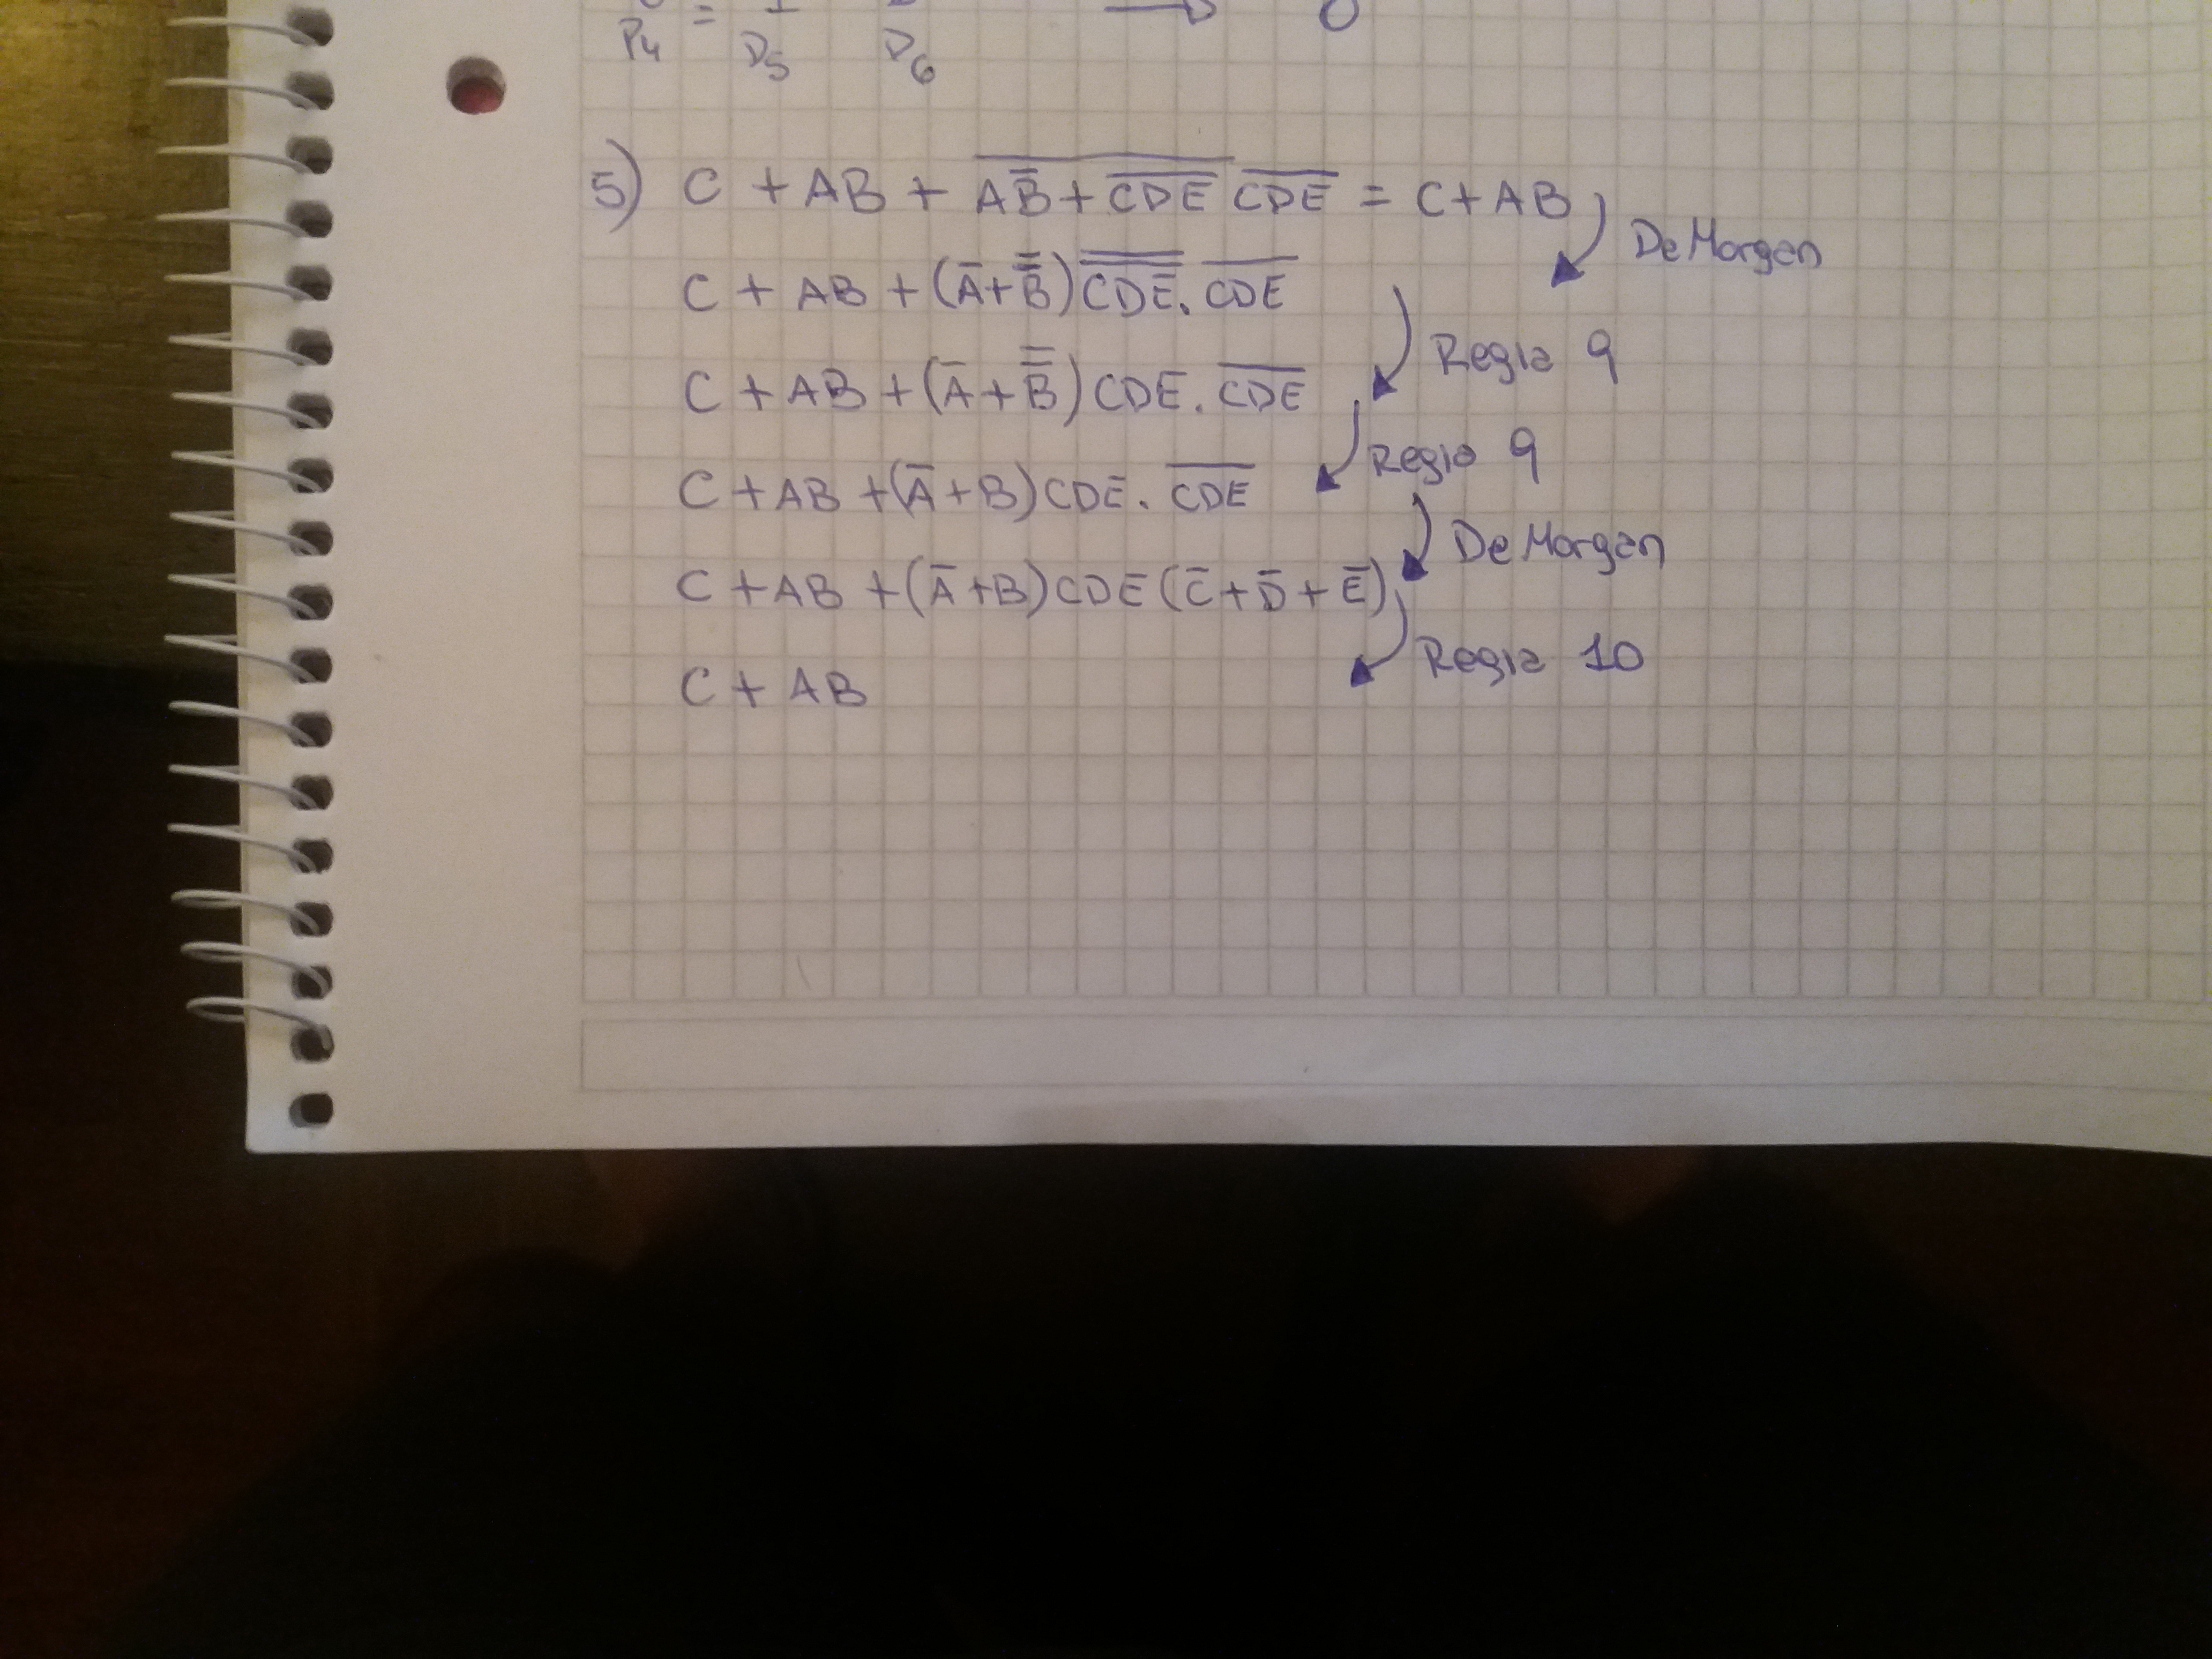 P₄ = D₅ D₆ → 0
5) C + AB + \overline{A\overline{B} + \overline{CDE}} \overline{CDE} = C + AB
De Morgan
C + AB + (\overline{A} + \overline{\overline{B}}) \overline{\overline{CDE}} . \overline{CDE}
Regla 9
C + AB + (\overline{A} + \overline{\overline{B}}) CDE . \overline{CDE}
Regla 9
C + AB + (\overline{A} + B) CDE . \overline{CDE}
De Morgan
C + AB + (\overline{A} + B) CDE (\overline{C} + \overline{D} + \overline{E})
Regla 10
C + AB